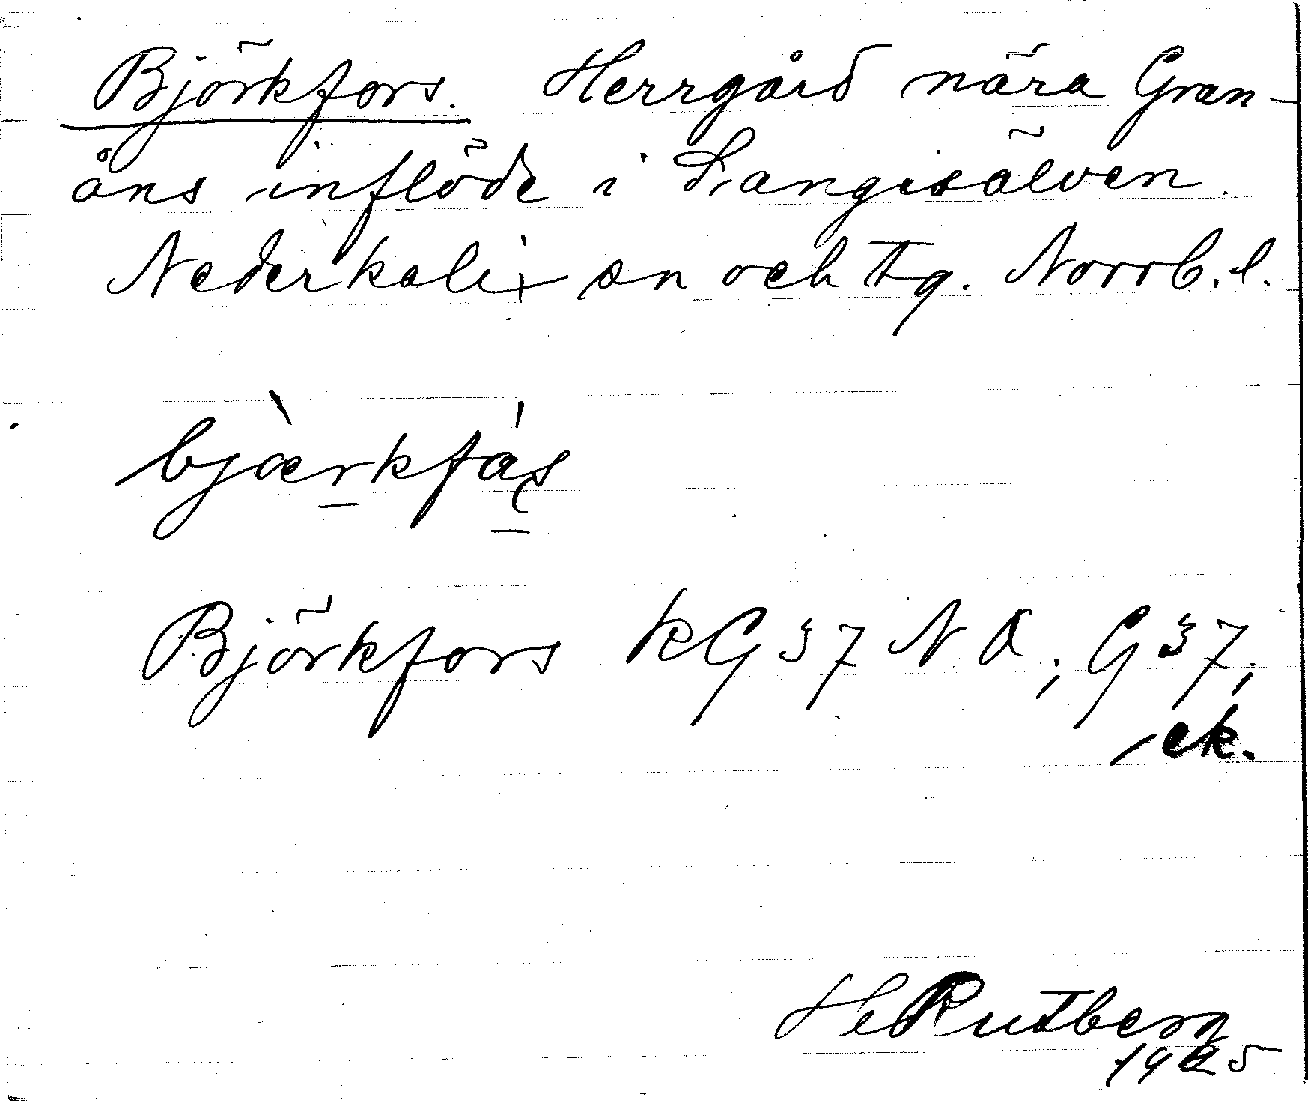 Björkfors. Herrgård nära Gran-
åns inflöde i Sangisälven.
Nederkalix sn och tg. Norrb. l.
bjœ̀rkfás
Björkfors KG37 NO; G37;
ek.
H Rutberg
1925